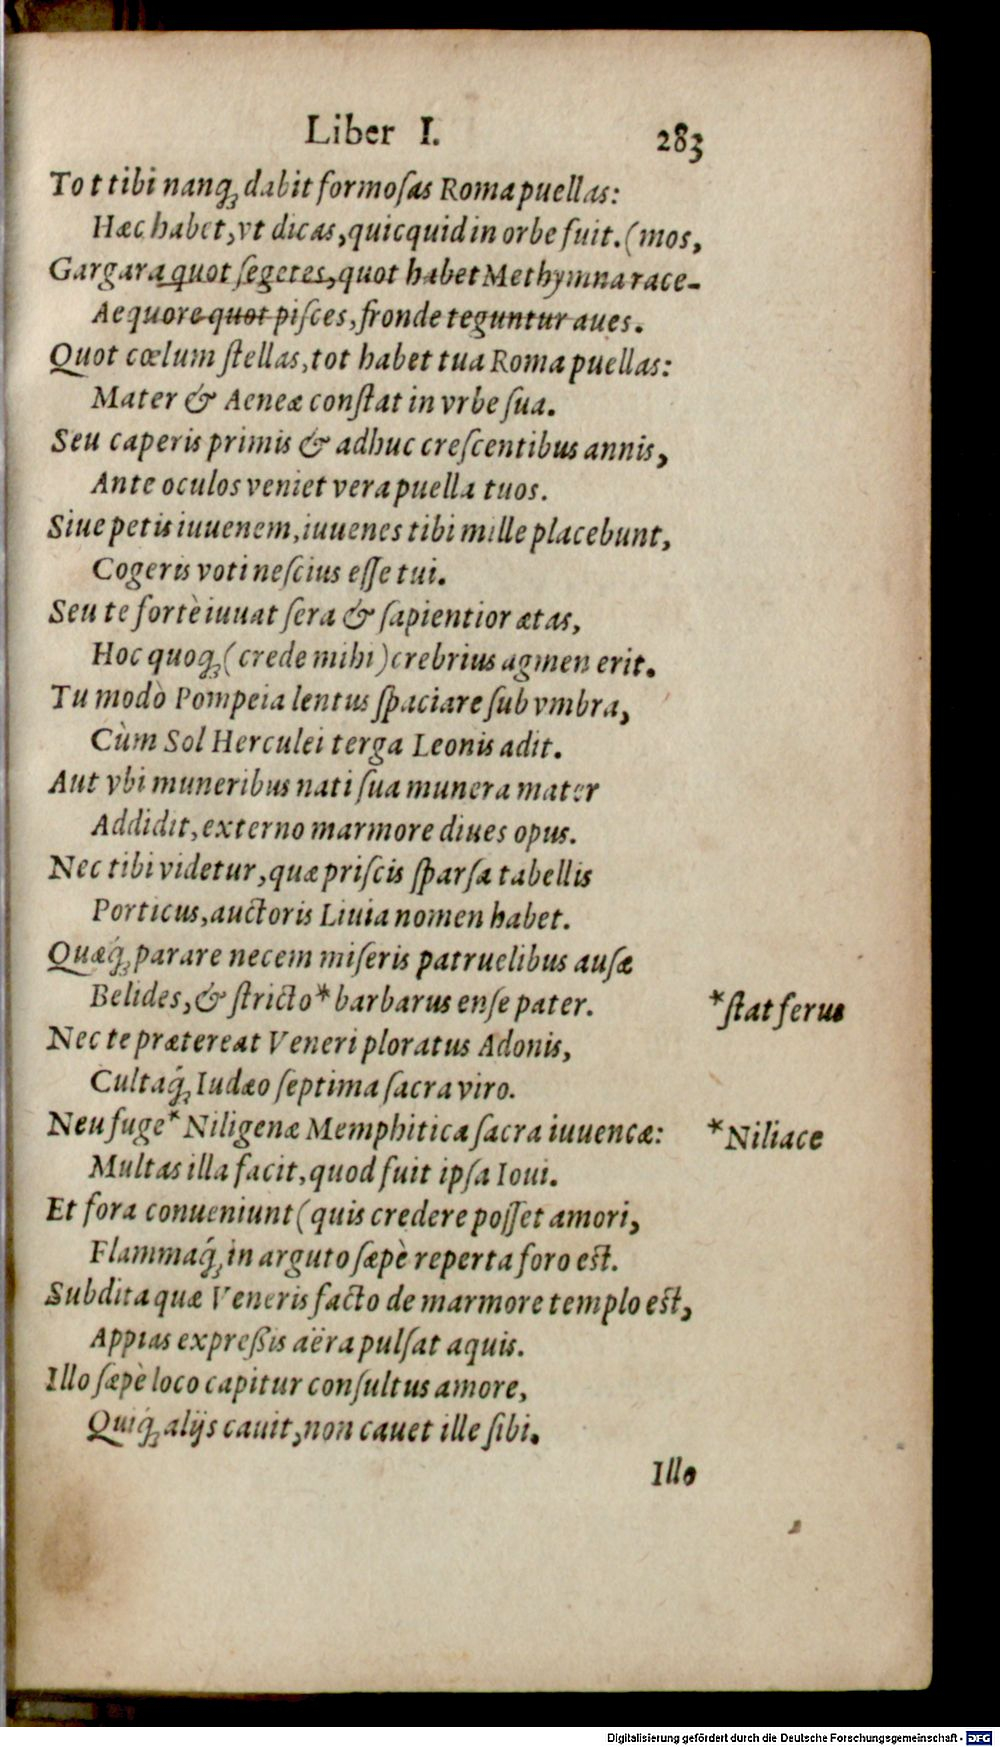 Liber I. 283
Tot tibi nanq́; dabit formoſas Roma puellas:
Hæc habet, vt dicas, quicquid in orbe fuit. (mos,
Gargara quot ſegetes, quot habet Methymna race-
Aequore quot piſces, fronde teguntur aues.
Quot cœlum ſtellas, tot habet tua Roma puellas:
Mater & Aeneæ conſtat in vrbe ſua.
Seu caperis primis & adhuc creſcentibus annis,
Ante oculos veniet vera puella tuos.
Siue petis iuuenem, iuuenes tibi mille placebunt,
Cogeris voti neſcius eſſe tui.
Seu te fortè iuuat ſera & ſapientior ætas,
Hoc quoq; (crede mihi) crebrius agmen erit.
Tu modò Pompeia lentus ſpaciare ſub vmbra,
Cùm Sol Herculei terga Leonis adit.
Aut vbi muneribus nati ſua munera mater
Addidit, externo marmore diues opus.
Nec tibi videtur, quæ priſcis ſparſa tabellis
Porticus, auctoris Liuia nomen habet.
Quæq́; parare necem miſeris patruelibus auſæ
Belides, & ſtricto* barbarus enſe pater. *ſtat ferus
Nec te prætereat Veneri ploratus Adonis,
Cultaq́; Iudæo ſeptima ſacra viro.
Neu fuge* Niligenæ Memphitica ſacra iuuencæ: *Niliace
Multas illa facit, quod fuit ipſa Ioui.
Et fora conueniunt (quis credere poſſet amori,
Flammaq́; in arguto ſæpè reperta foro est.
Subdita quæ Veneris facto de marmore templo est,
Appias expreßis aëra pulſat aquis.
Illo ſæpè loco capitur conſultus amore,
Quiq́; alijs cauit, non cauet ille ſibi.
Illo
Digitalisierung gefördert durch die Deutsche Forschungsgemeinschaft - DFG